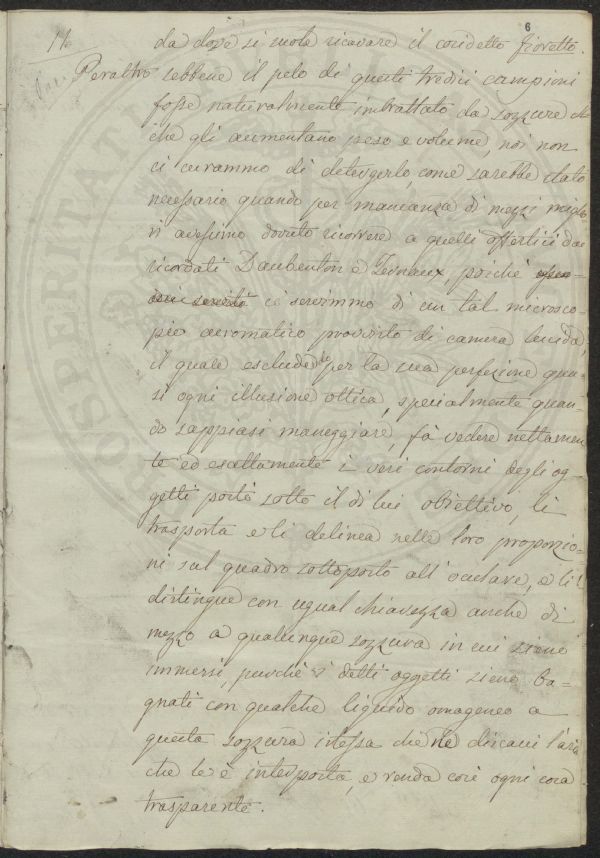 6
da dove si suole ricavare il cosidetto fioretto.
Peraltro sebbene il pelo di questi tredici campioni
fosse naturalmente imbrattato da sozzure
che gli aumentano peso e volume, noi non
ci curammo di detergerlo, come sarebbe stato
necessario quando per mancanza di mezzi miglio
ri avessimo dovuto ricorrere a quelli offertici dai
ricordati Daubenton e Ternaux, poiché
ci servimmo di un tal microsco-
pio acromatico provvisto di camera lucida,
il quale escludendo per la sua perfezione qua-
si ogni illusione ottica, specialmente quan-
do sappiasi maneggiare, fà vedere nettamen
te ed esattamente i veri contorni degli og-
getti posti sotto il di lui obiettivo, li
trasporta e li delinea nelle loro proporzio-
ni sul quadro sottoposto all'oculare, e li
distingue con ugual chiarezza anche di
mezzo a qualunque sozzura in cui sieno
immersi, purchè i detti oggetti sieno ba-
gnati con qualche liquido omogeneo a
questa sozzura istessa che ne discacci l'aria
che le è interposta, e renda così ogni cosa
trasparente.
PROSPERITATI